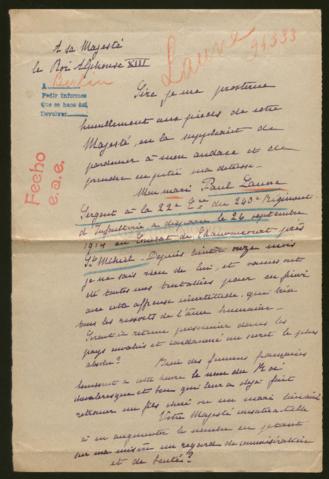 A sa Majesté
le Roi Alphonse XIII
Laure
94333
A
Berlin
Pedir informes
Que se haga así,
Devolver
Fecho
e.a.e.
Sire je me prosterne
humblement aux pieds de votre
Majesté, en la suppliant de
pardonner à mon audace et de
prendre en pitié ma détresse.
Mon mari Paul Laure
Sergent à la 22e Cie du 243e Régiment
d'Infanterie a disparu le 26 septembre
1914 au combat de
St Mihiel. Depuis onze mois
je ne sais rien de lui, et vaines ont
été toutes mes tentatives pour en finir
avec cette affreuse incertitude, que brise
tous les ressorts de l'âme humaine.
Serait-il retenu prisonnier dans les
pays envahis et condamné au secret le plus
absolu? Bien des femmes françaises
bénissent à cette heure le nom du Roi
chevaleresque et bon qui leur a déjà fait
retrouver un fils chéri ou un mari
Votre Majesté
à en augmenter le nombre en jetant
sur ma misère un regard de commisération
et de bonté?